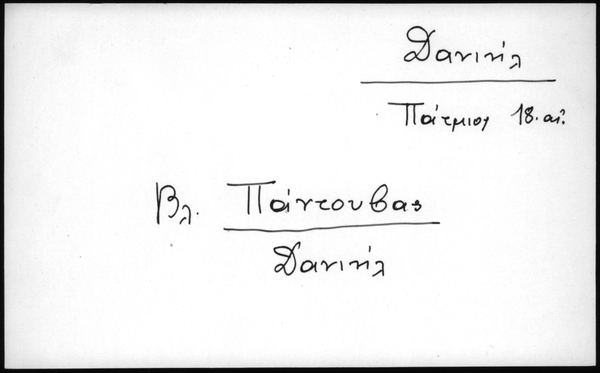 Δανιήλ
Πάτμιος 18. αἰ.
Βλ. Πάντουβας
Δανιήλ